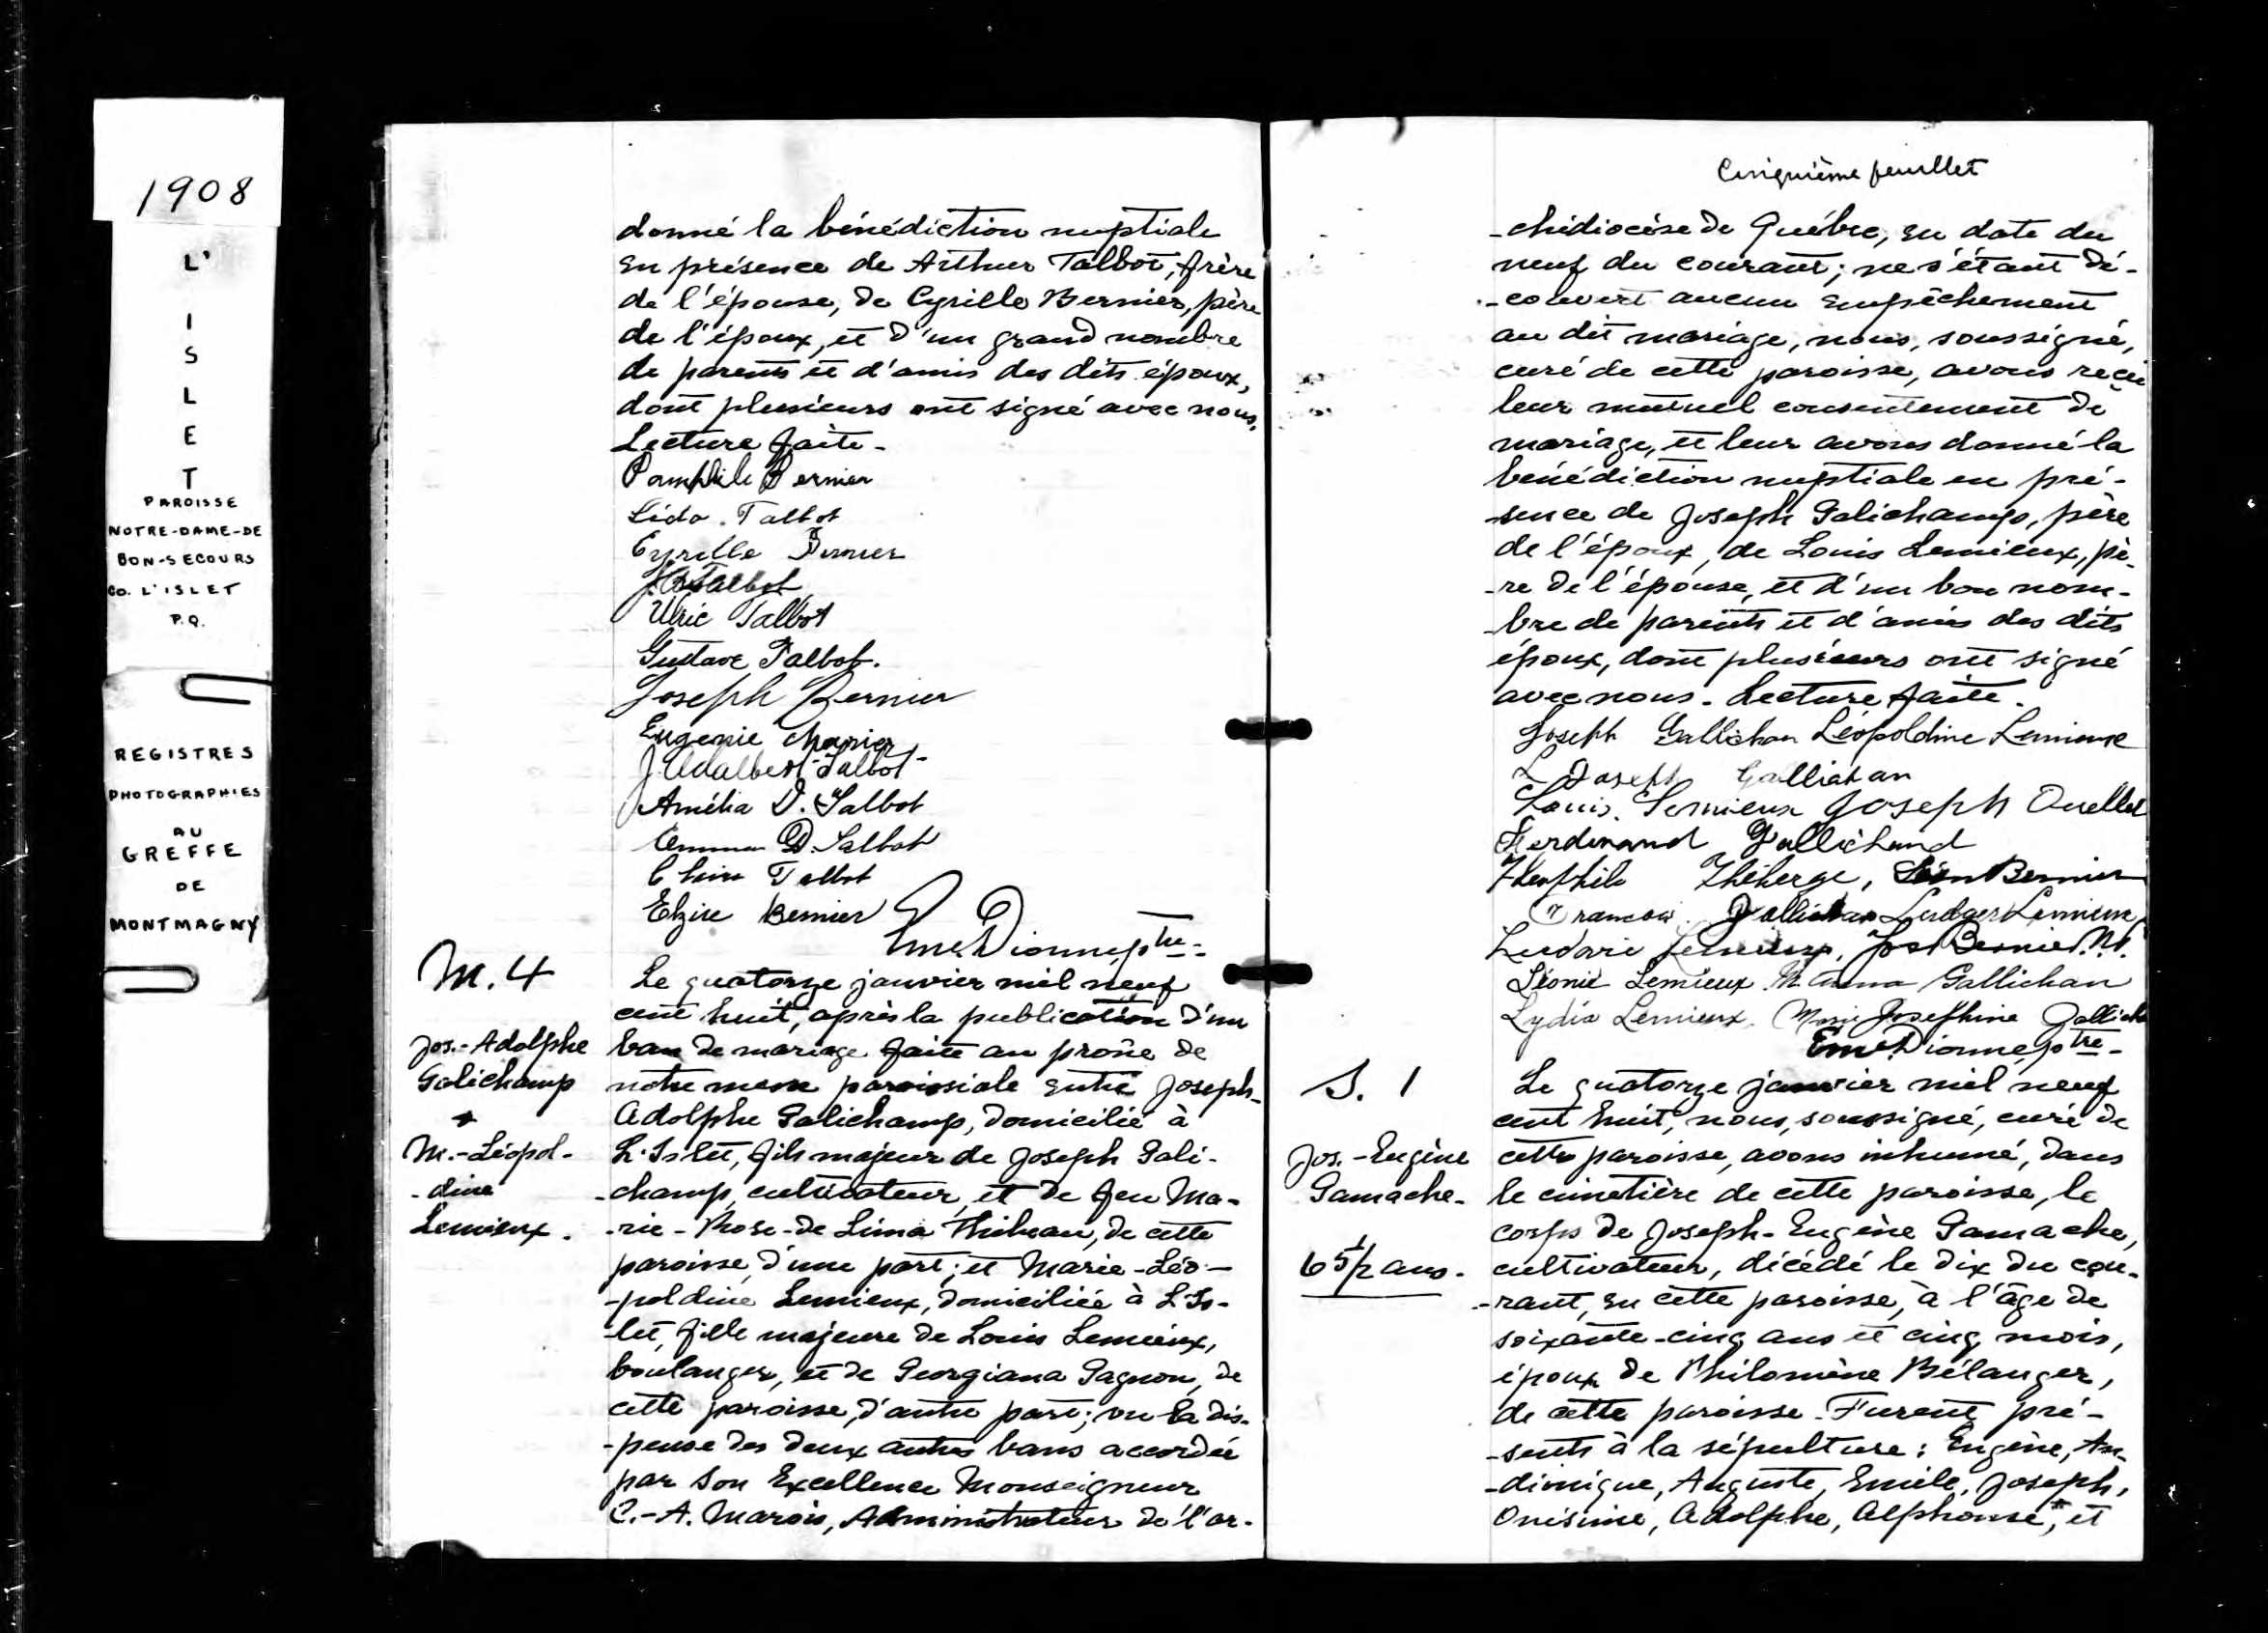 1908
L'
I
S
L
E
T
PAROISSE
NOTRE-DAME-DE
BON-SECOURS
CO. L'ISLET
P.Q.
REGISTRES
PHOTOGRAPHIES
AU
GREFFE
DE
MONTMAGNY
donné la bénédiction nuptiale
en présence de Arthur Talbot, frère
de l'épouse, de Cyrille Bernier, père
de l'époux, et d'un grand nombre
de parents et d'amis des dits époux,
dont plusieurs ont signé avec nous.
Lecture faite-
Pamphile Bernier
Lida Talbot
Cyrille Bernier
Talbot
Ulric Talbot
Gustave Talbot.
Joseph Bernier
Eugenie
J. Adalbert Talbot
Amélia D. Talbot
Emma D. Talbot
Talbot
Elzire Bernier
Em. Dionne, ptre-
M. 4
Jos.-Adolphe
Galichamp
+
M.-Léopol-
-dine
Lemieux.
Le quatorze janvier mil neuf
cent huit, après la publication d'un
ban de mariage faite au prône de
notre messe paroissiale entre Joseph-
Adolphe Galichamp, domicilié à
L'Islet, fils majeur de Joseph Gali-
-champ, cultivateur, et de feu Ma-
-rie-Rose-de Lima Thibeau, de cette
paroisse, d'une part; et Marie-Léo-
-poldine Lemieux, domiciliée à L'Is-
-let, fille majeure de Louis Lemieux,
boulanger, et de Georgiana Gagnon, de
cette paroisse, d'autre part; vu la dis-
-pense des deux autres bans accordée
par Son Excellence Monseigneur
C.-A. Marois, Administrateur de l'ar-
Cinquième feuillet
-chidiocèse de Québec, en date du
neuf du courant; ne s'étant dé-
-couvert aucun empêchement
au dit mariage, nous, soussigné,
curé de cette paroisse, avons reçu
leur mutuel consentement de
mariage, et leur avons donné la
bénédiction nuptiale en pré-
-sence de Joseph Galichamp, père
de l'époux, de Louis Lemieux, pè-
-re de l'épouse, et d'un bon nom-
-bre de parents et d'amis des dits
époux, dont plusieurs ont signé
avec nous. Lecture faite.
Joseph Gallichan Léopoldine Lemieux
Joseph Gallichan
Louis Lemieux Joseph Ouellet
Ferdinand Gallichand
Théophile Théberge, Léon Bernier
Francois Gallichan Ludger Lemieux
Lemieux, Jos Bernier N.P.
Léonie Lemieux M. Anna Gallichan
Lydia Lemieux. Marie Josephine Gallicha
Em. Dionne, ptre-
S. 1
Jos.-Eugène
Gamache-
65 1/2 ans.
Le quatorze janvier mil neuf
cent huit, nous, soussigné, curé de
cette paroisse, avons inhumé, dans
le cimetière de cette paroisse, le
corps de Joseph-Eugène Gamache,
cultivateur, décédé le dix du cou-
-rant, en cette paroisse, à l'âge de
soixante-cinq ans et cinq mois,
époux de Philomène Bélanger,
de cette paroisse. Furent pré-
-sents à la sépulture: Eugène, An-
-dronique, Auguste, Emile, Joseph,
Onésime, Adolphe, Alphonse, et